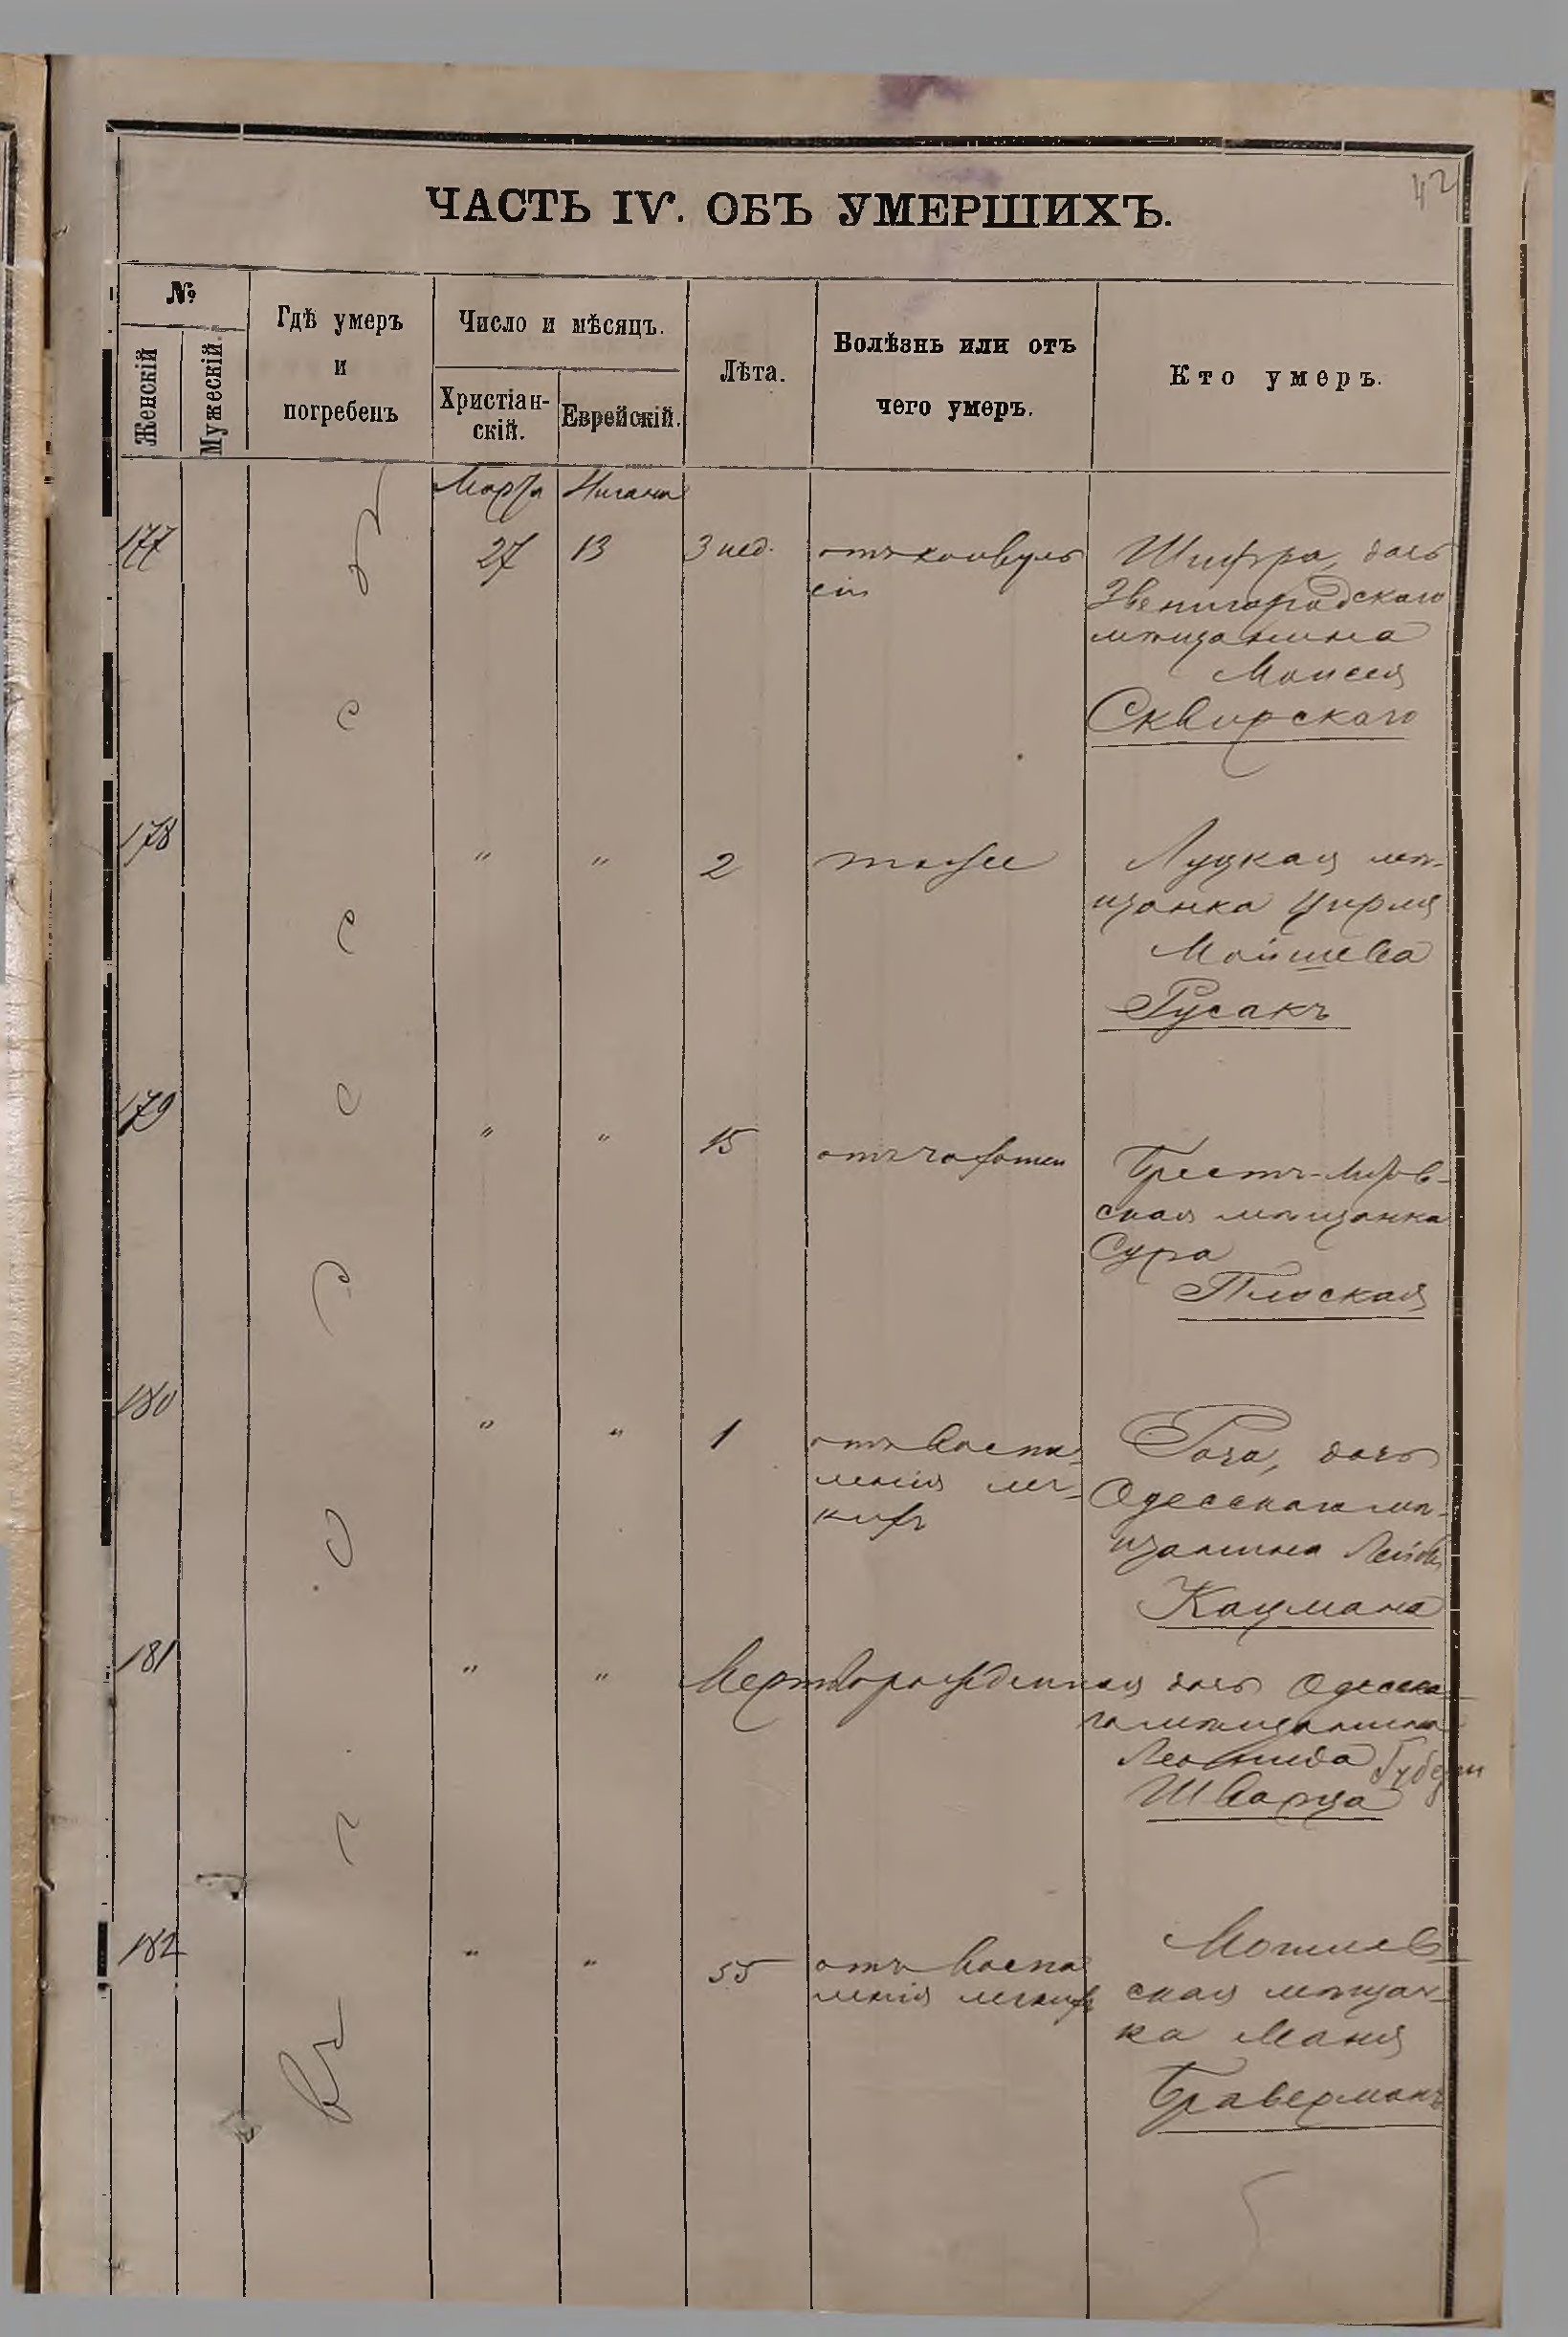 42
ЧАСТЬ IV. ОБЪ УМЕРШИХЪ.
№
Женскій
Мужескій.
Гдѣ умеръ
и
погребенъ
Число и мѣсяцъ.
Христіан-
скій.
Еврейскій.
Лѣта.
Болѣзнь или отъ
чего умеръ.
Кто умеръ.
Въ г. Одессѣ
Марта Нисана
177 27 13 3 нед. отъ конвуль Шифра, дочь
сіи Звенигородскаго
мѣщанина
Моисея
Сквирскаго
178 " " 2 тоже Луцкая мѣ-
щанка Цирля
Мойшева
Русакъ
179 " " 15 отъ чахотки Брестъ-Литов-
ская мѣщанка
Сура
Плоская
180 " " 1 отъ воспа-
ленія лег-
кихъ
Роза, дочь
Одесскаго мѣ-
щанина Лейбы
Кацмана
181 " " Мертворожденная дочь Одесска-
го мѣщанина
Леонида
Шварца
182 " " 55 отъ воспа
ленія легкихъ
Могилев-
ская мѣщан-
ка Маня
Браверманъ